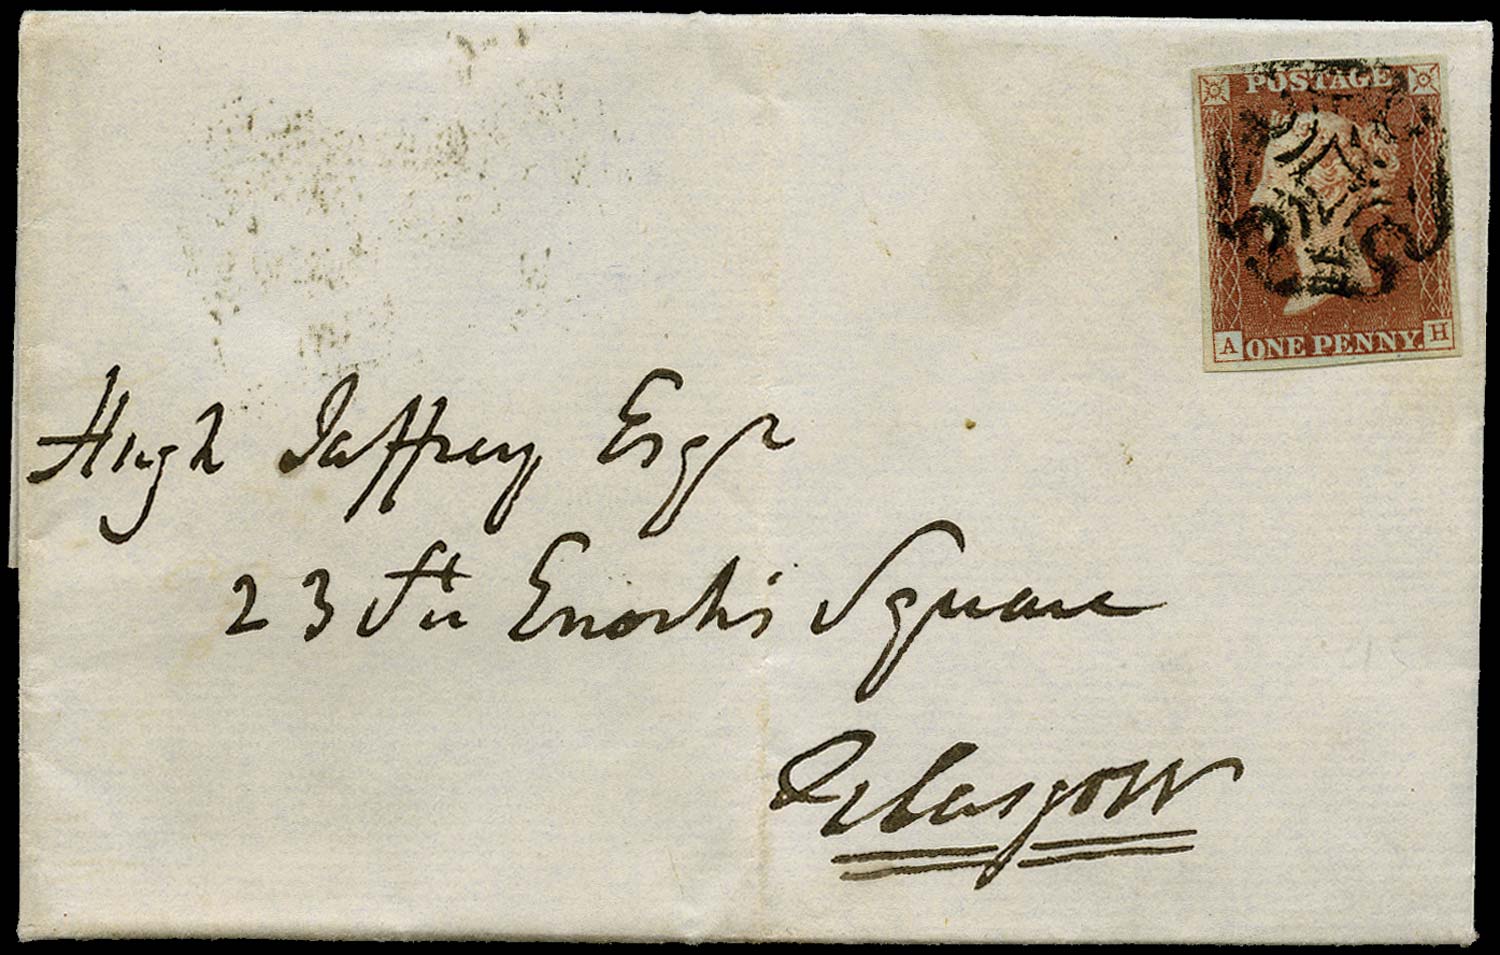 POSTAGE
A ONE PENNY. H
Hugh Jaffrey Esqr
23 St Enoch's Square
Glasgow